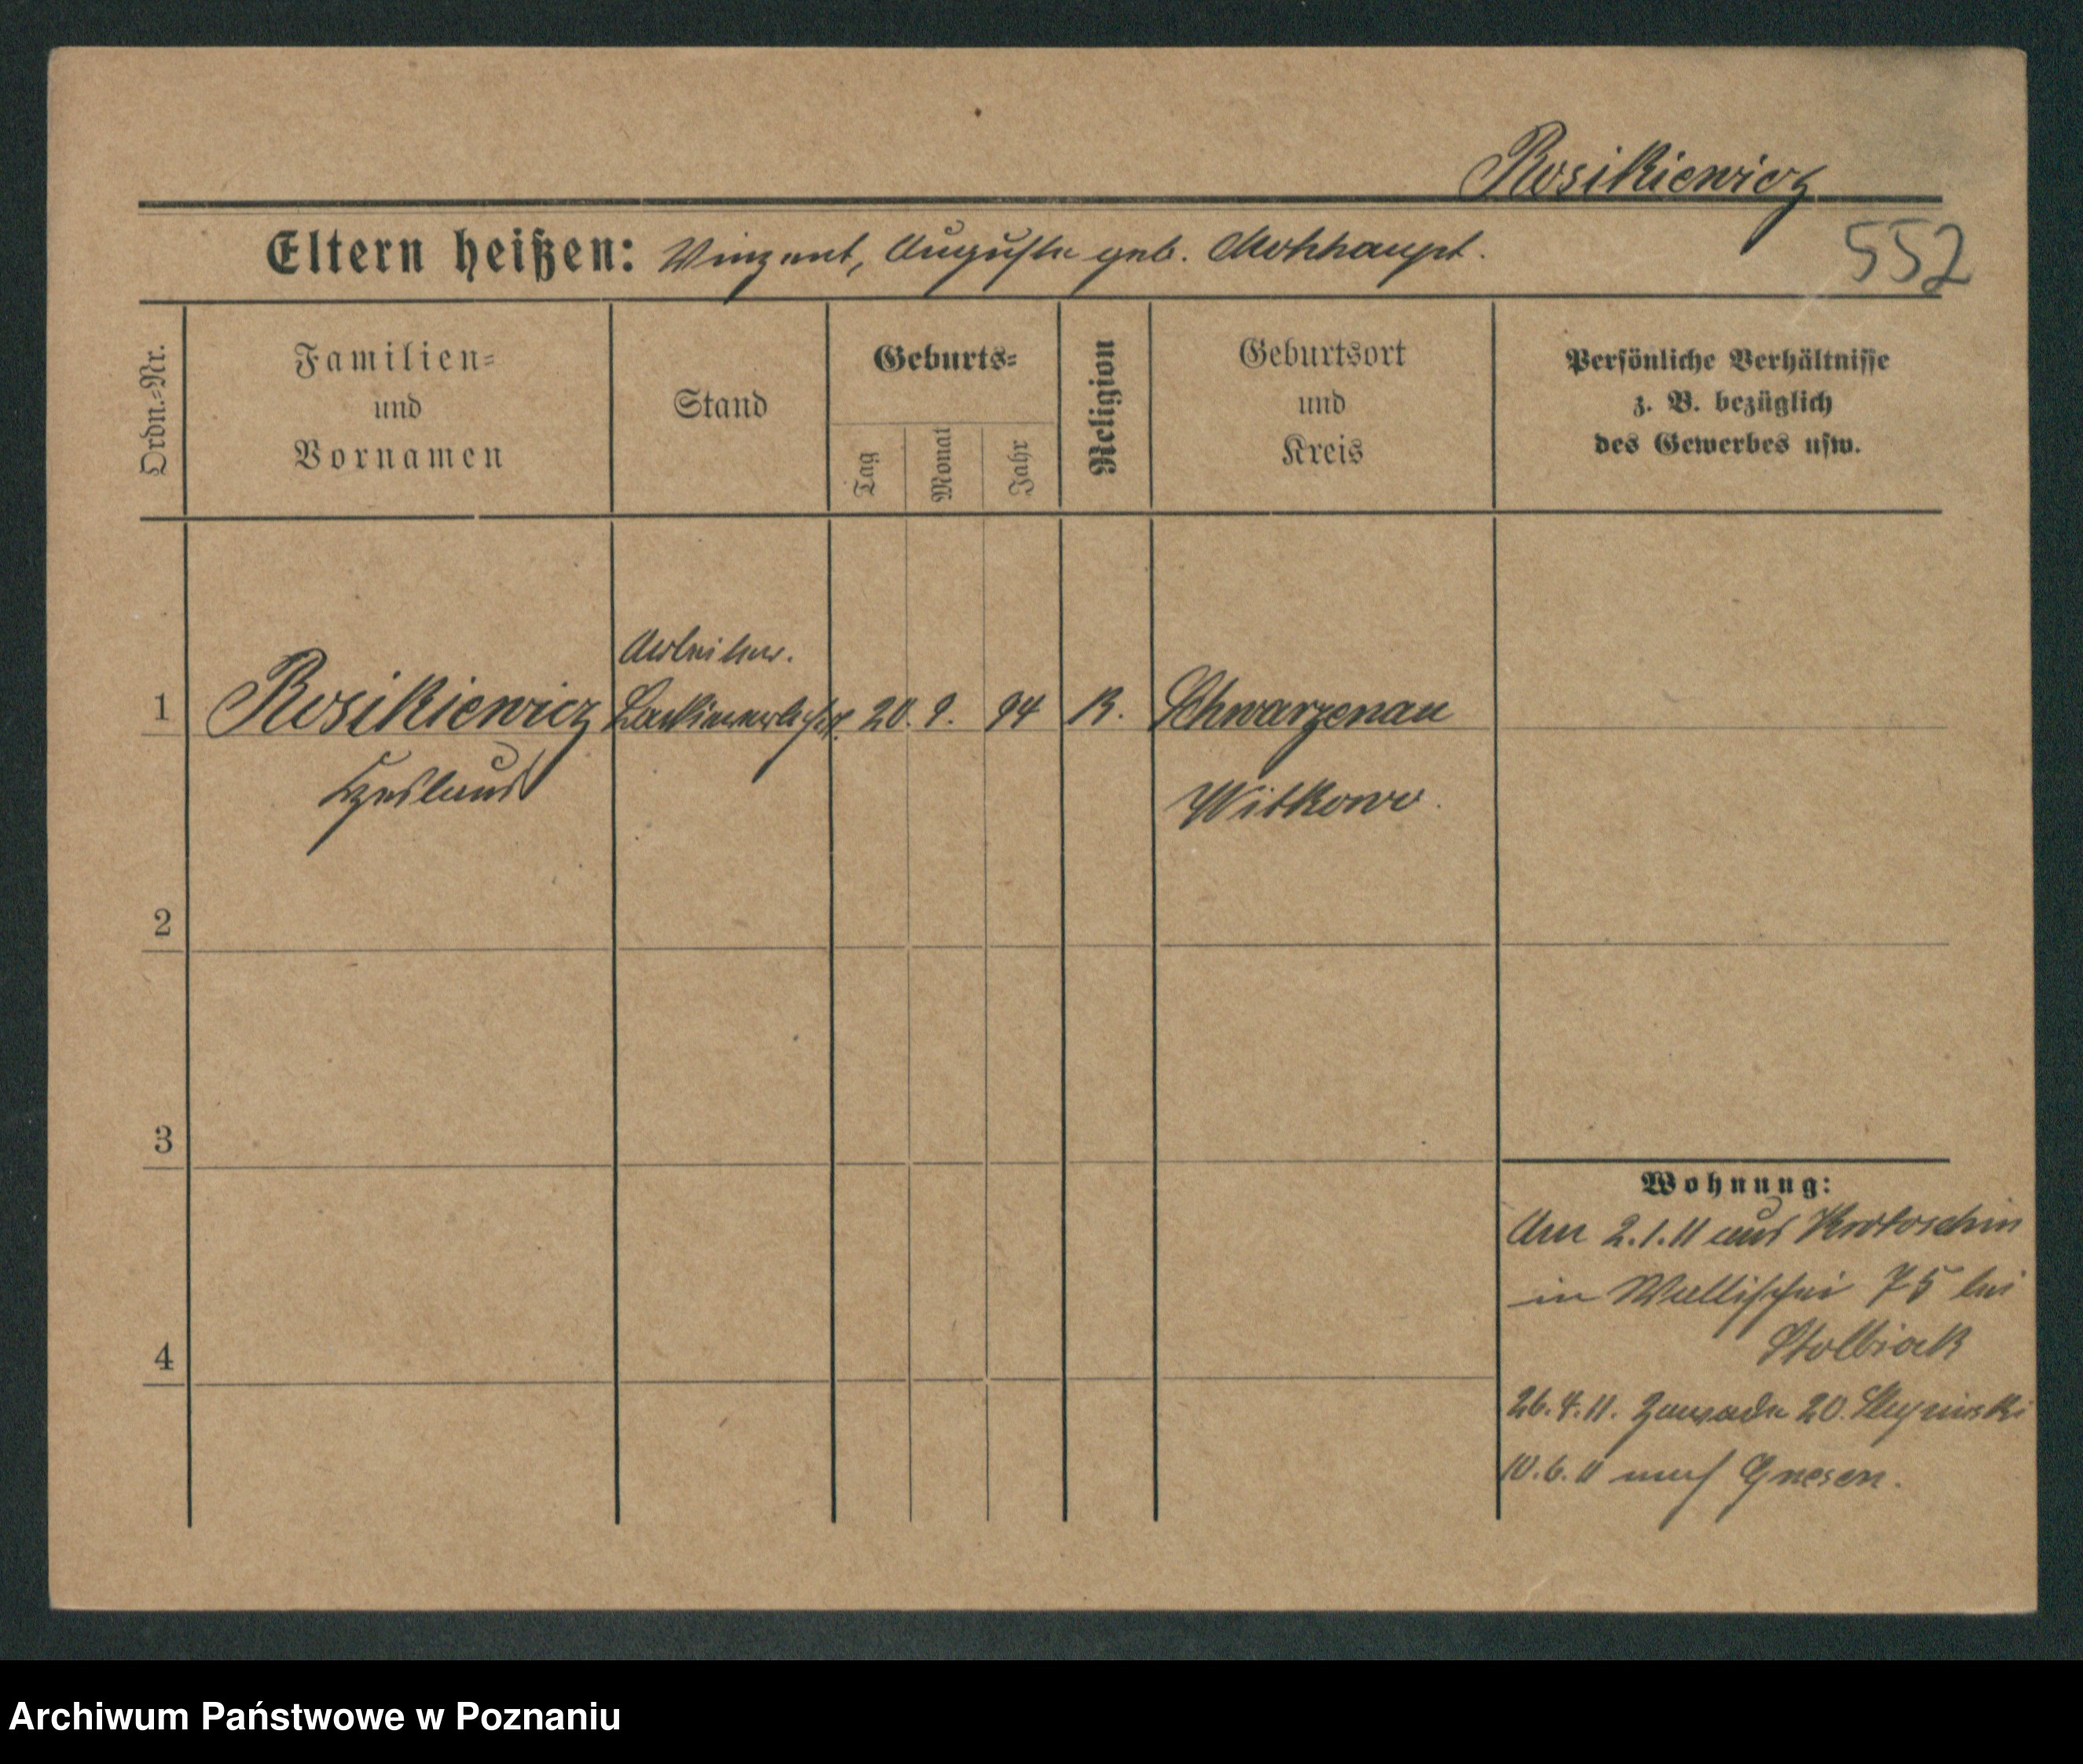 Rosikiewicz
Eltern heißen: Vinzent, Auguste geb. Mohhaupt.
552
Ordn.-Nr.
Familien-
und
Vornamen
Stand
Geburts-
Tag
Monat
Jahr
Religion
Geburtsort
und
Kreis
Persönliche Verhältnisse
z. B. bezüglich
des Gewerbes usw.
Arbeiter.
1 Rosikiewicz 20. 9. 94 K. Schwarzenau
Witkowo.
2
3
4
Wohnung:
Am 2.1.11 aus Krotoschin
in Wallischei 75 bei
Stolbiak
26.4.11. Zawade 20.
10.6.11 nach Gnesen.
Archiwum Państwowe w Poznaniu